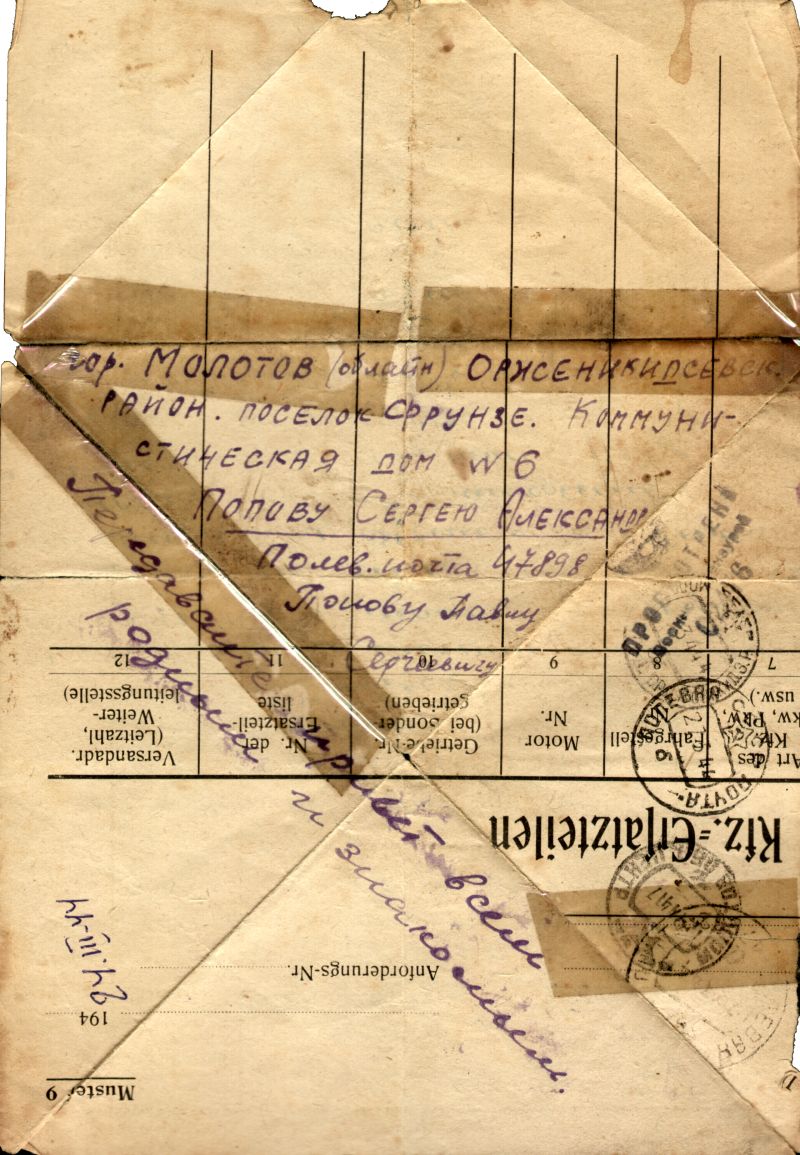 гор. МОЛОТОВ (облайн) ОРЖЕНИКИДСЕВСК.
РАЙОН. ПОСЕЛОК ФРУНЗЕ. КОММУНИ-
СТИЧЕСКАЯ ДОМ №6
ПОПОВУ СЕРГЕЮ АЛЕКСАНДР
Полев. почта 47898
Попову Павлу
Сергеевичу
Передавайте привет всем
родным и знакомым.
24.III-44
ПРОСМОТРЕНО
Военной Цензурой
ПОЛЕВАЯ
ПОЧТА
7
8
9
10
11
12
Art des Kfz. (Lkw, Pkw, usw.
Fahrgestell Nr.
Motor Nr.
Getriebe-Nr. (bei Sonder-getrieben)
Nr. der Ersatzteil-liste
Versandadr. (Leitzahl, Weiter-leitungsstelle)
Kfz.=Ersatzteilen
Anforderungs-Nr.
194
Muster 9